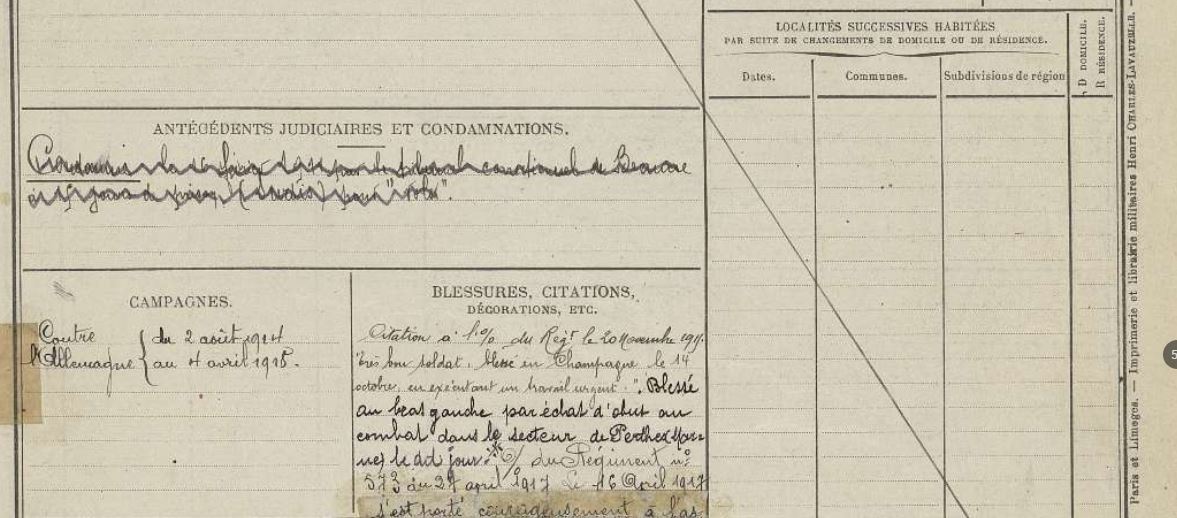 LOCALITÉS SUCCESSIVES HABITÉES
PAR SUITE DE CHANGEMENTS DE DOMICILE OU DE RÉSIDENCE.
Dates.
Communes.
Subdivisions de région
D DOMICILE.
R RÉSIDENCE.
ANTÉCÉDENTS JUDICIAIRES ET CONDAMNATIONS.
Condamné le par le tribunal correctionnel de Beaune
à jours de prison (sursis) pour "vols".
CAMPAGNES.
Contre
l'Allemagne
du 2 août 1914
au 4 avril 1918.
BLESSURES, CITATIONS,
DÉCORATIONS, ETC.
Citation à l'o/. du Régt le 20 Novembre
"très bon soldat, blessé en Champagne le 14
octobre, en exécutant un travail urgent.". Blessé
au bras gauche par éclat d'obus au
combat dans le secteur de Perthes (Mar-
ne) le dit jour. du Régiment no
573 du 27 april 1917 Le 16 Avril 1917
s'est porté courageusement à l'as
Paris et Limoges. — Imprimerie et librairie militaires Henri CHARLES-LAVAUZELLE.
5